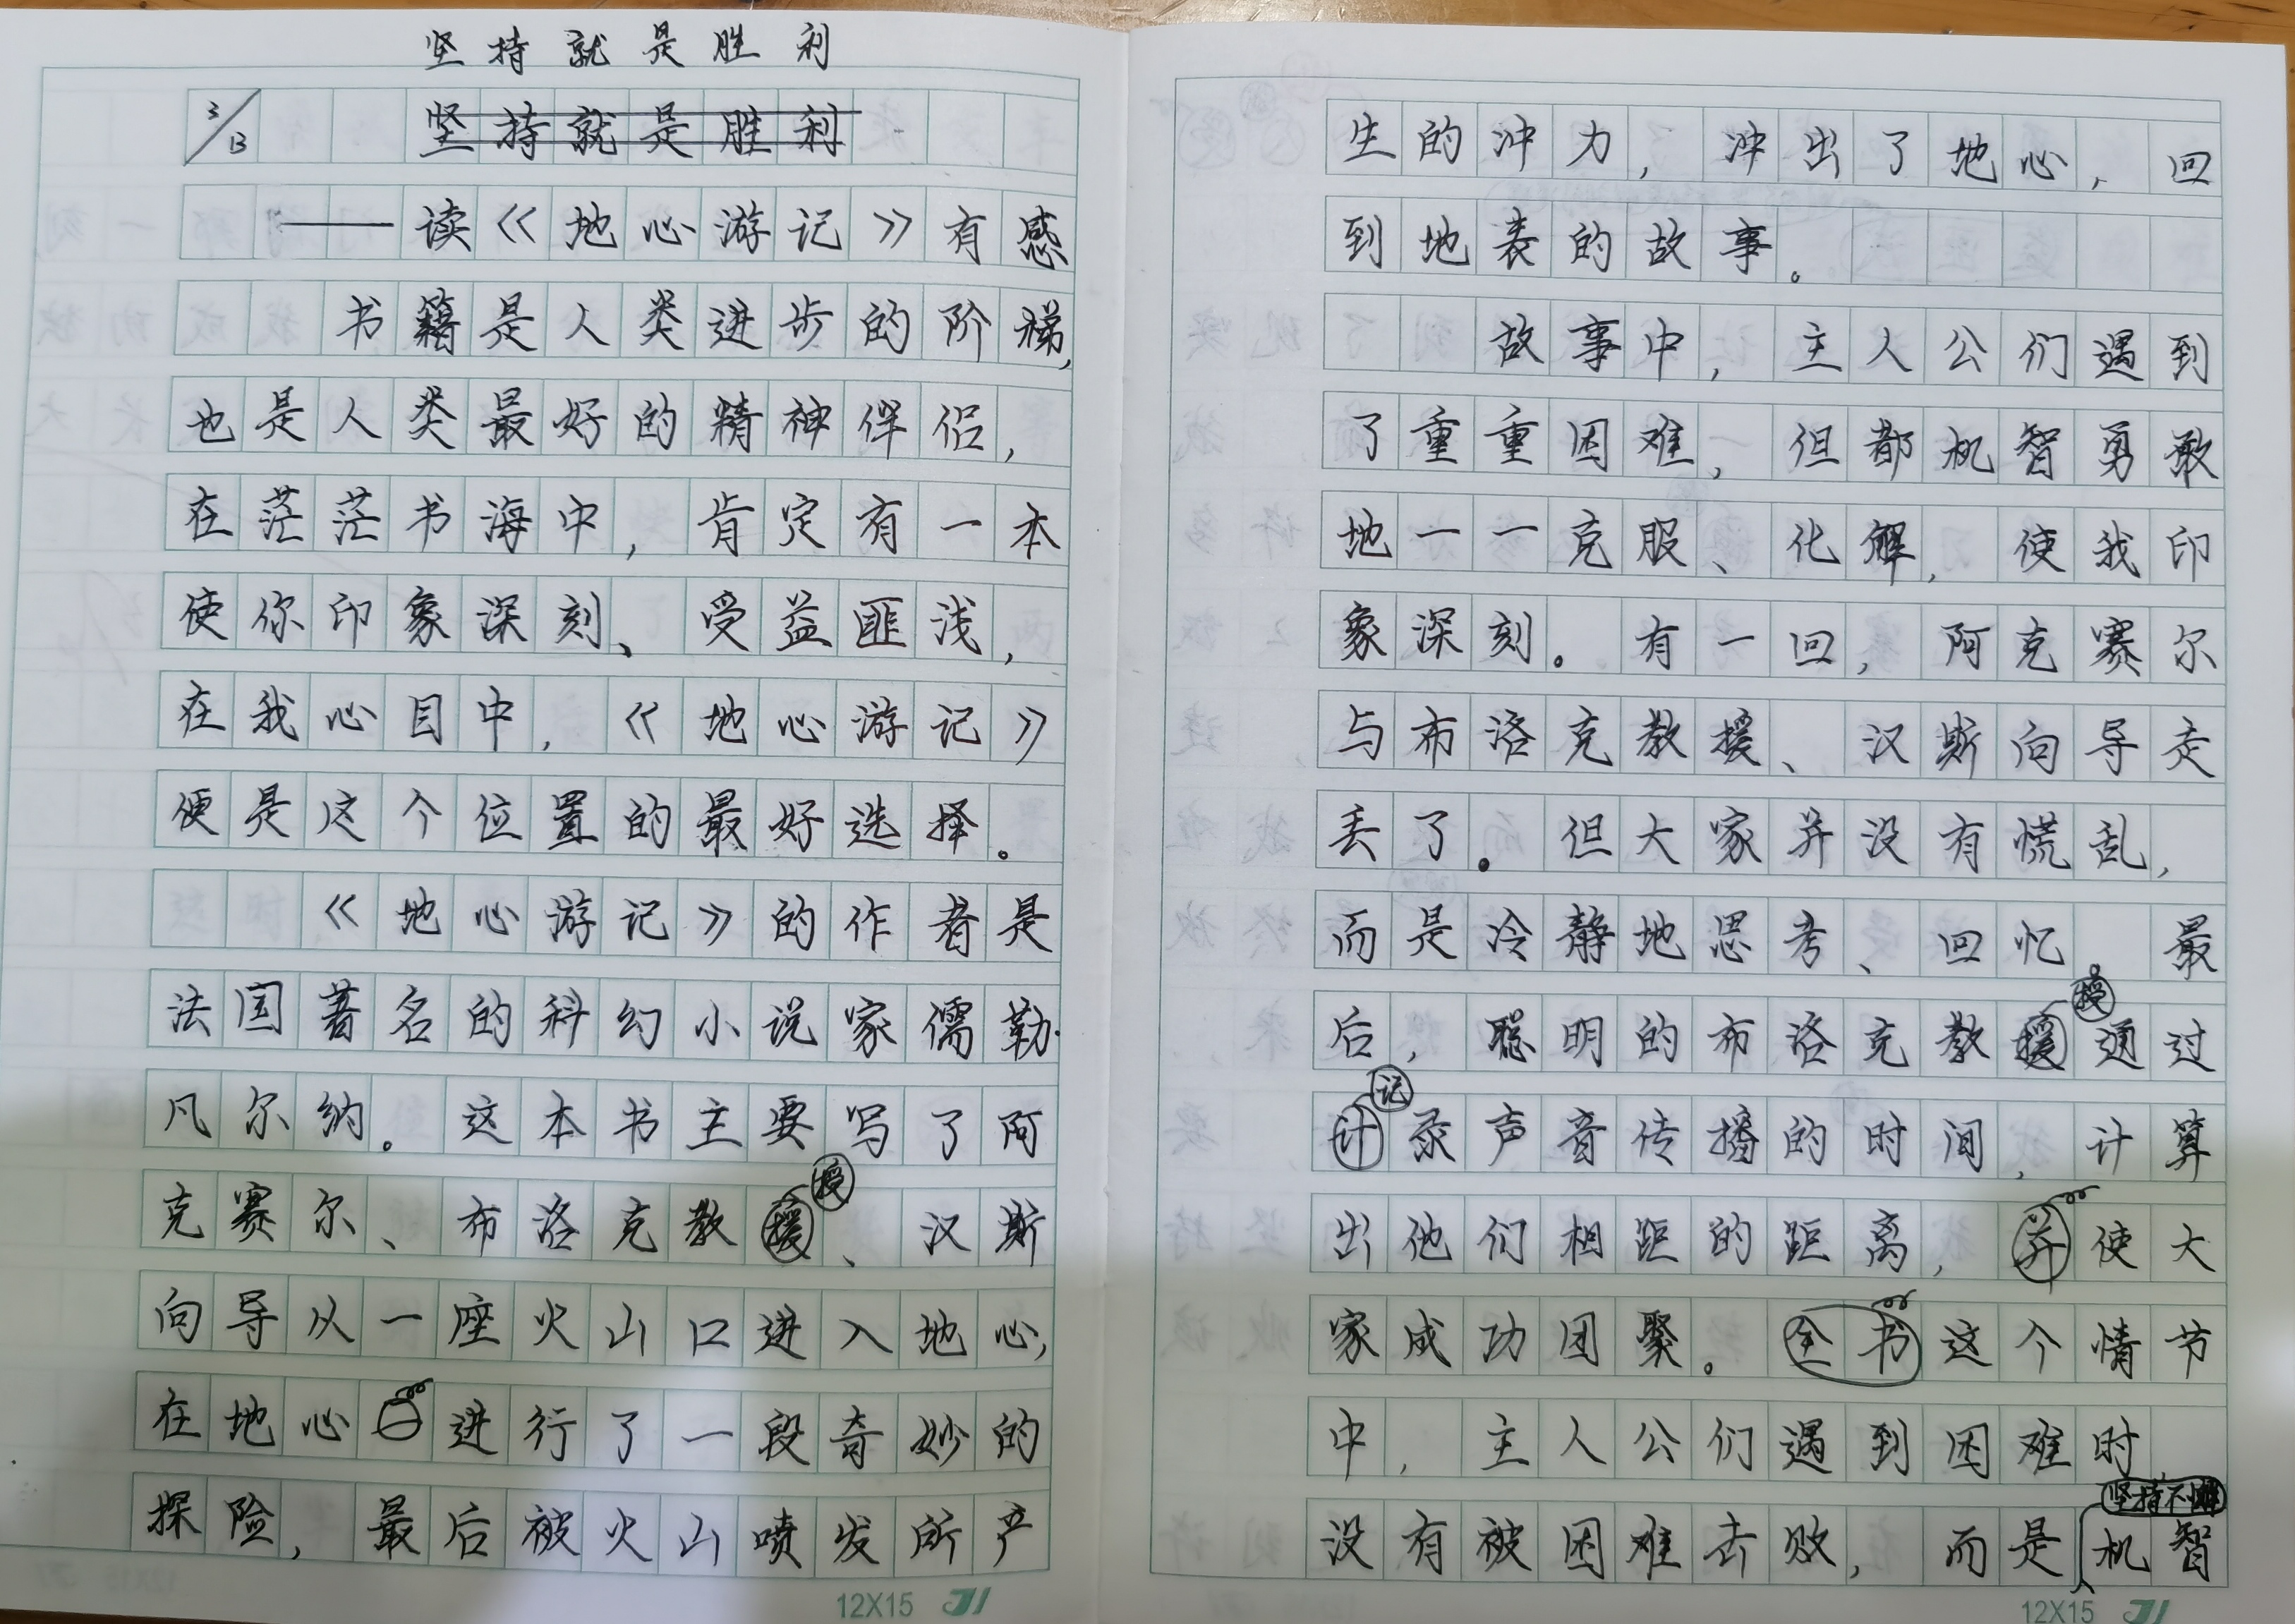 坚持就是胜利
3/13 坚持就是胜利
——读《地心游记》有感
书籍是人类进步的阶梯,
也是人类最好的精神伴侣,
在茫茫书海中,肯定有一本
使你印象深刻、受益匪浅,
在我心目中,《地心游记》
便是这个位置的最好选择。
《地心游记》的作者是
法国著名的科幻小说家儒勒·
凡尔纳。这本书主要写了阿
授
克赛尔、布洛克教援、汉斯
向导从一座火山口进入地心,
在地心进行了一段奇妙的
探险,最后被火山喷发所产
12X15
生的冲力,冲出了地心,回
到地表的故事。
故事中,主人公们遇到
了重重困难,但都机智勇敢
地一一克服、化解,使我印
象深刻。有一回,阿克赛尔
与布洛克教援、汉斯向导走
丢了。但大家并没有慌乱,
而是冷静地思考、回忆。最
授
后,聪明的布洛克教援通过
记
计录声音传播的时间,计算
出他们相距的距离,并使大
家成功团聚。全书这个情节
中,主人公们遇到困难时
坚持不懈
没有被困难击败,而是机智
12X15